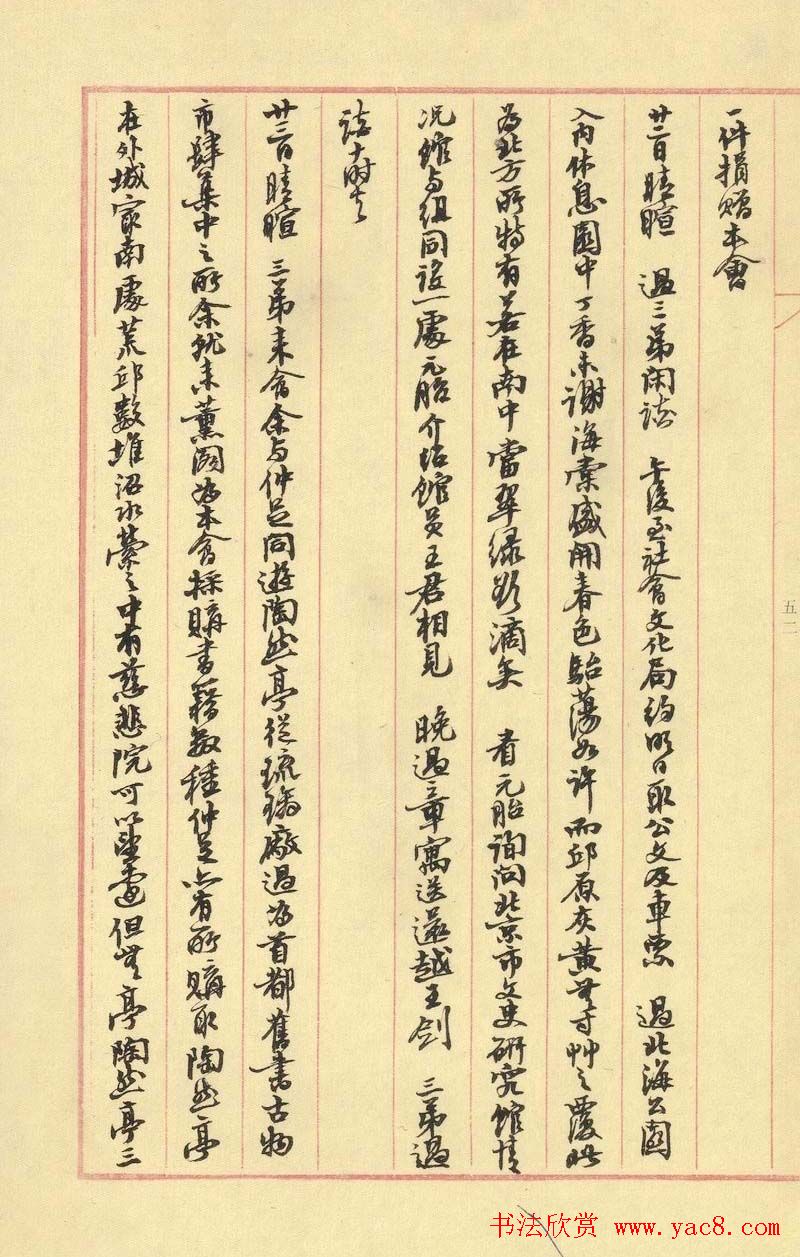 一件捐赠本會
廿二日晴暄 過三弟闲談 午後至社會文化局約明日取公文及車票 過北海公園
入内休息園中丁香未谢海棠盛開春色駘蕩如許而邱原灰黄無寸艸之覆此
為北方所特有若在南中當翠绿欲滴矣 看元胎詢问北京市文史研究館情
况館与組同設一處元胎介绍館员王君相見 晚過二章寓送還越王剑 三弟過
談十时去
廿三日晴暄 三弟来會余与仲足同遊陶然亭從琉璃廠過為首都舊書古物
市肆集中之所余就来薰阁为本會採購書籍数種仲足亦有所購取陶然亭
在外城寂南處荒邱数堆沼水縈之中有慈悲院可以望遠但無亭陶然亭三
五二
书法欣赏 www.yac8.com